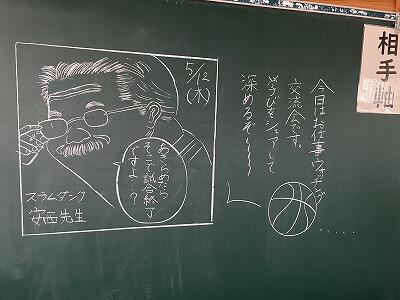 相手軸
今日はお仕事ウォッチング
交流会です。
学びをシェアして
深めるぞ〜〜〜
5/12
(木)
あきらめたら
そこで試合終了
ですよ…?
スラムダンク
安西先生